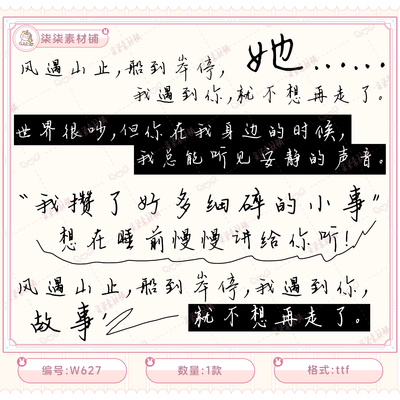 柒柒素材铺
风遇山止,船到岸停,她......
我遇到你,就不想再走了。
世界很吵,但你在我身边的时候,
我总能听见安静的声音。
“我攒了好多细碎的小事”
想在睡前慢慢讲给你听!
风遇山止,船到岸停,我遇到你,
故事 就不想再走了。
编号:W627
数量:1款
格式:ttf